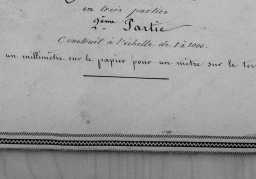 en trois parties
2ème Partie
Construit à l'échelle de 1 à 1000.
un millimètre sur le papier pour un mètre sur le ter